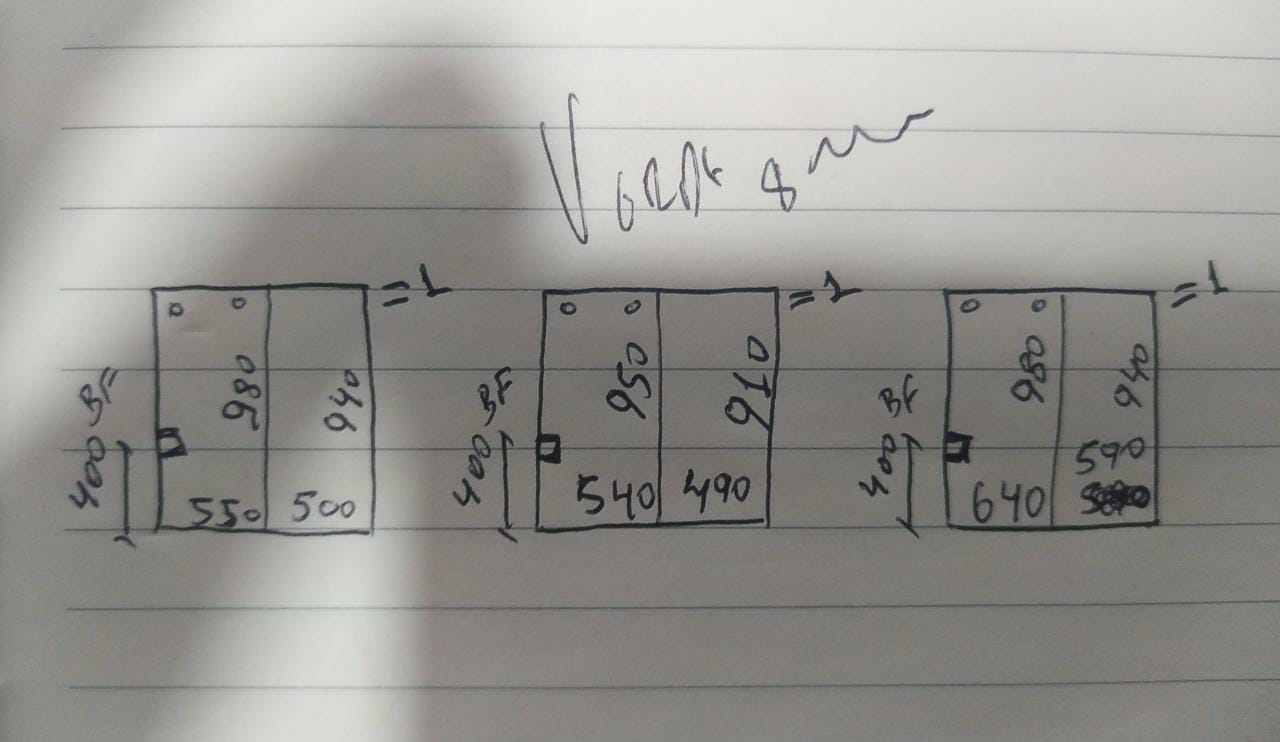 =1 =1 =1
400 BF 980 940 400 BF 950 910 400 BF 980 940
590
550 500 540 490 640